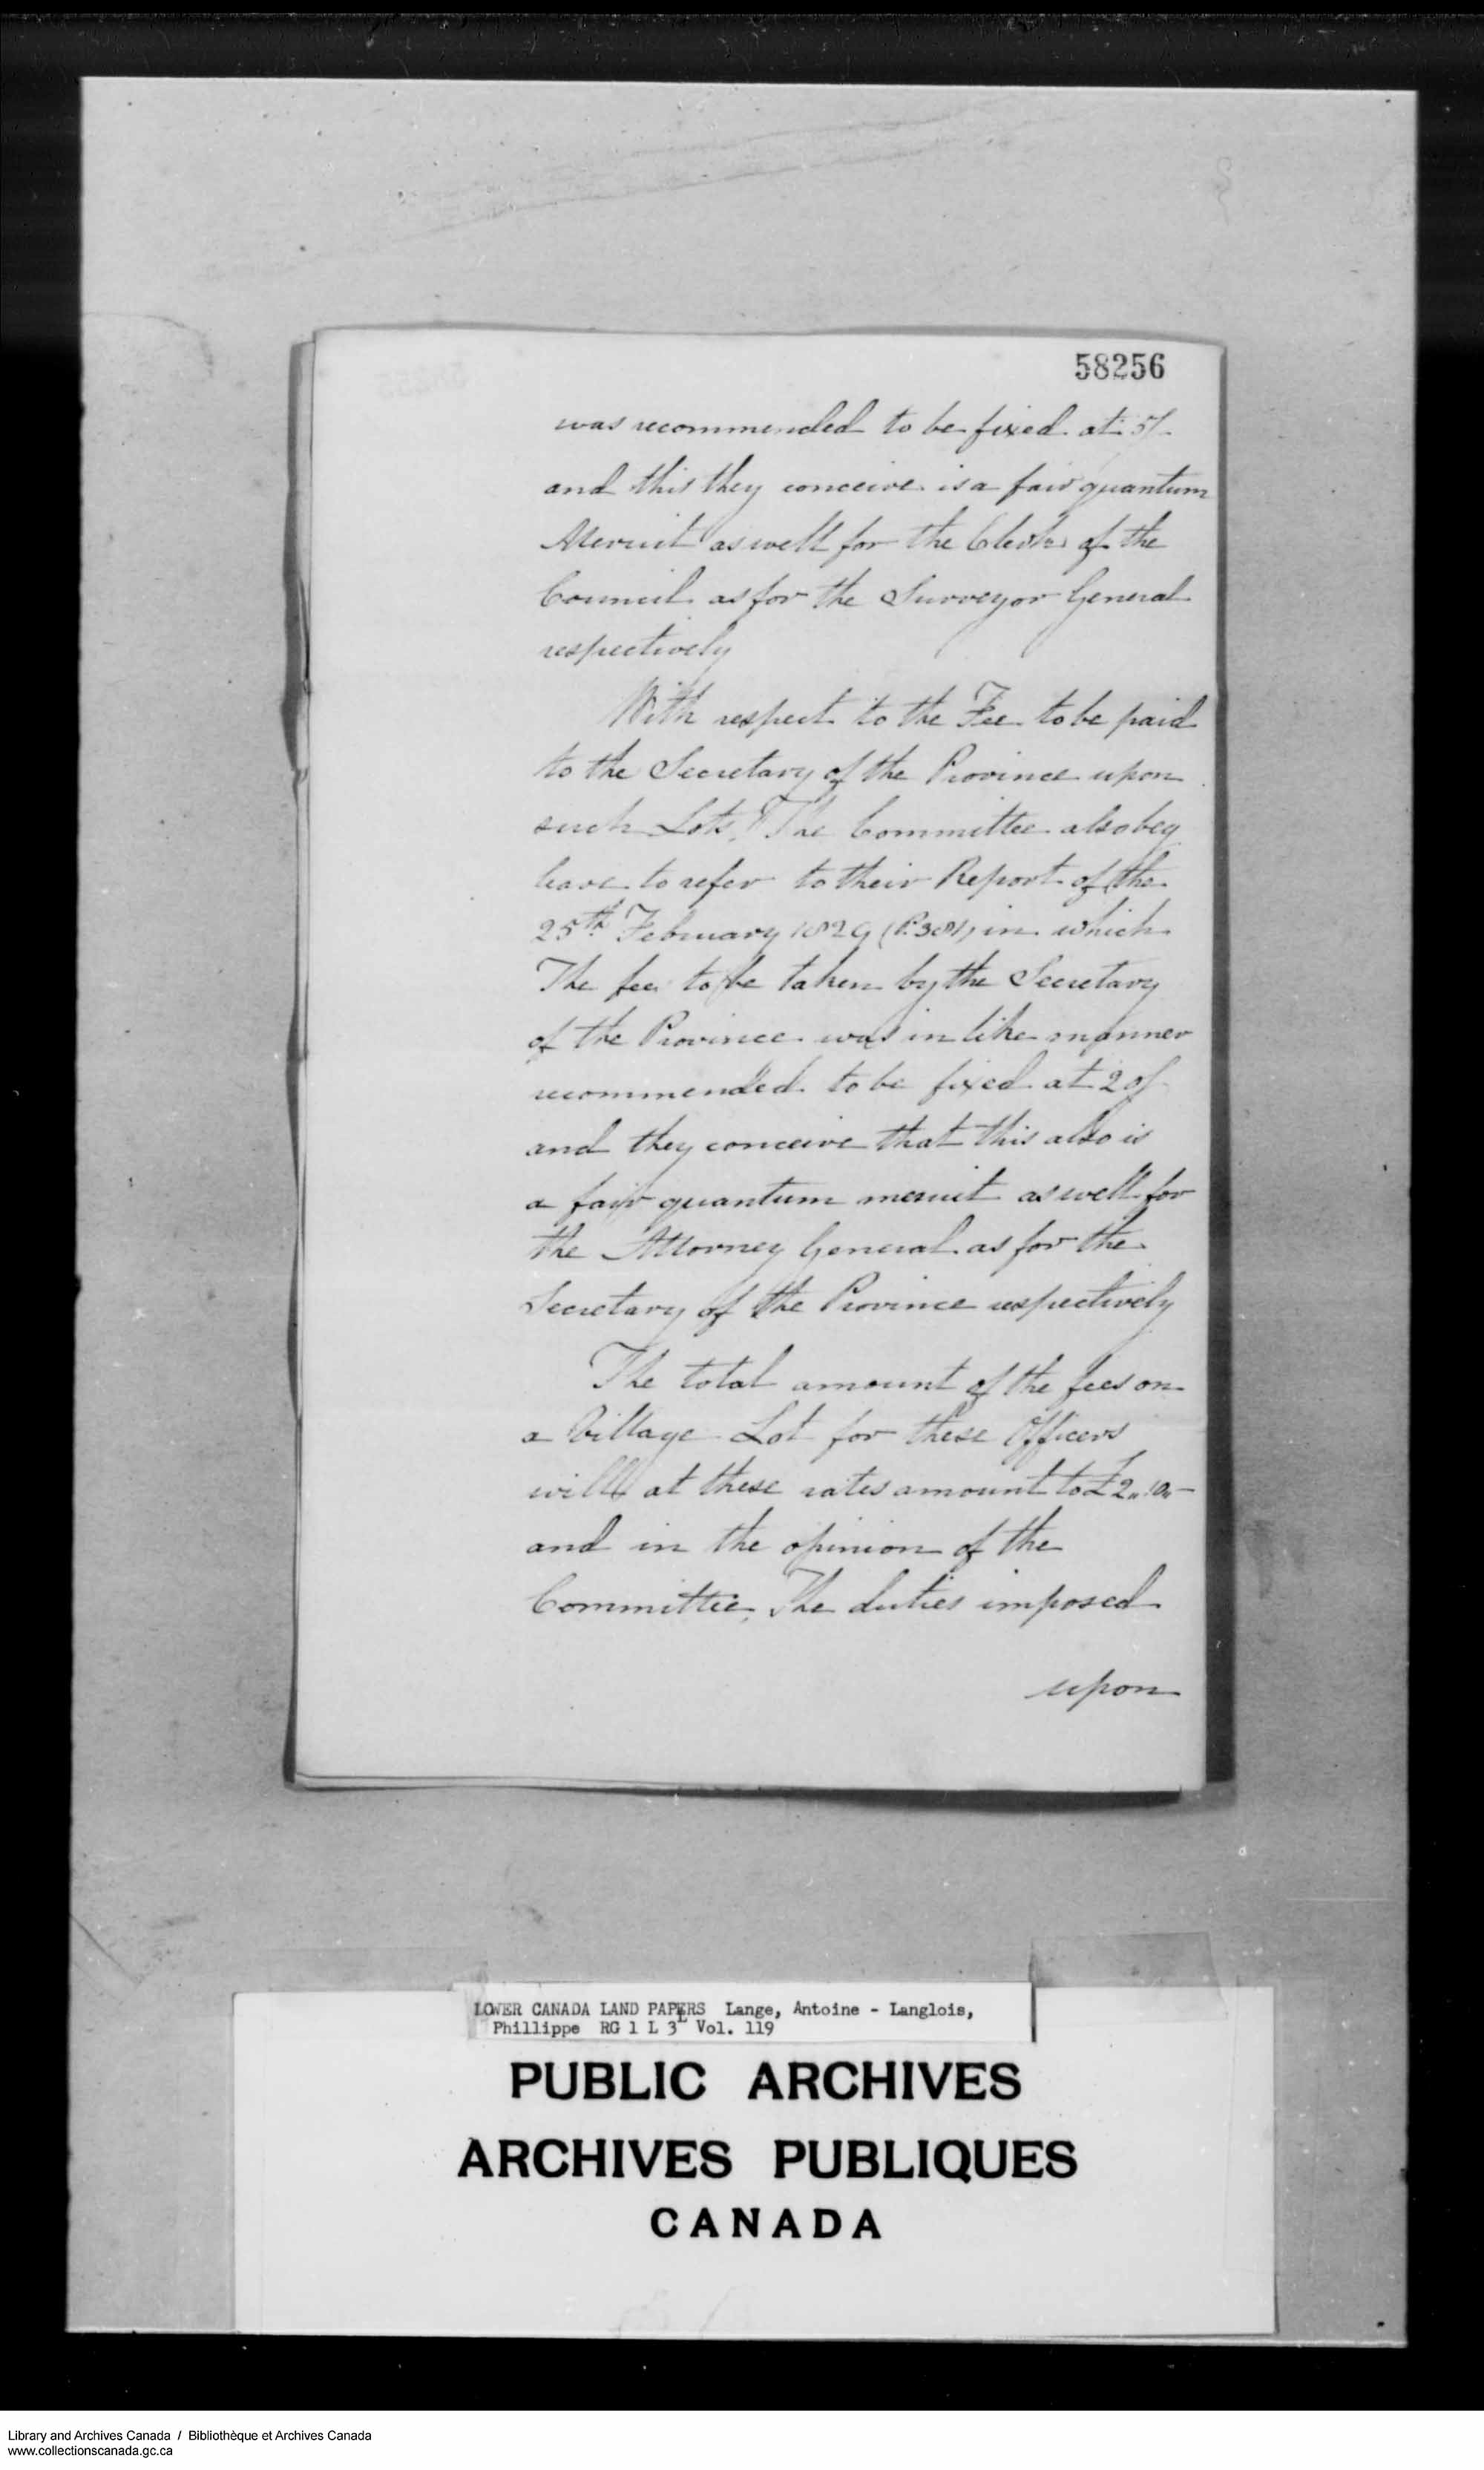 58256
was recommended to be fixed at 5/-
and this they conceive is a fair quantum
Meruit as well for the Clerk of the
Council as for the Surveyor General
respectively
With respect to the Fee to be paid
to the Secretary of the Province upon
such Lots, The Committee also beg
leave to refer to their Report of the
25th February 1829 (P. 381) in which
The fee to be taken by the Secretary
of the Province was in like manner
recommended to be fixed at 20/-
and they conceive that this also is
a fair quantum meruit as well for
the Attorney General as for the
Secretary of the Province respectively
The total amount of the fees on
a Village Lot for these Officers
will at these rates amount to £2,,10,,-
and in the opinion of the
Committee, The duties imposed
upon
LOWER CANADA LAND PAPERS Lange, Antoine - Langlois,
Phillippe RG 1 L 3L Vol. 119
PUBLIC ARCHIVES
ARCHIVES PUBLIQUES
CANADA
Library and Archives Canada / Bibliothèque et Archives Canada
www.collectionscanada.gc.ca